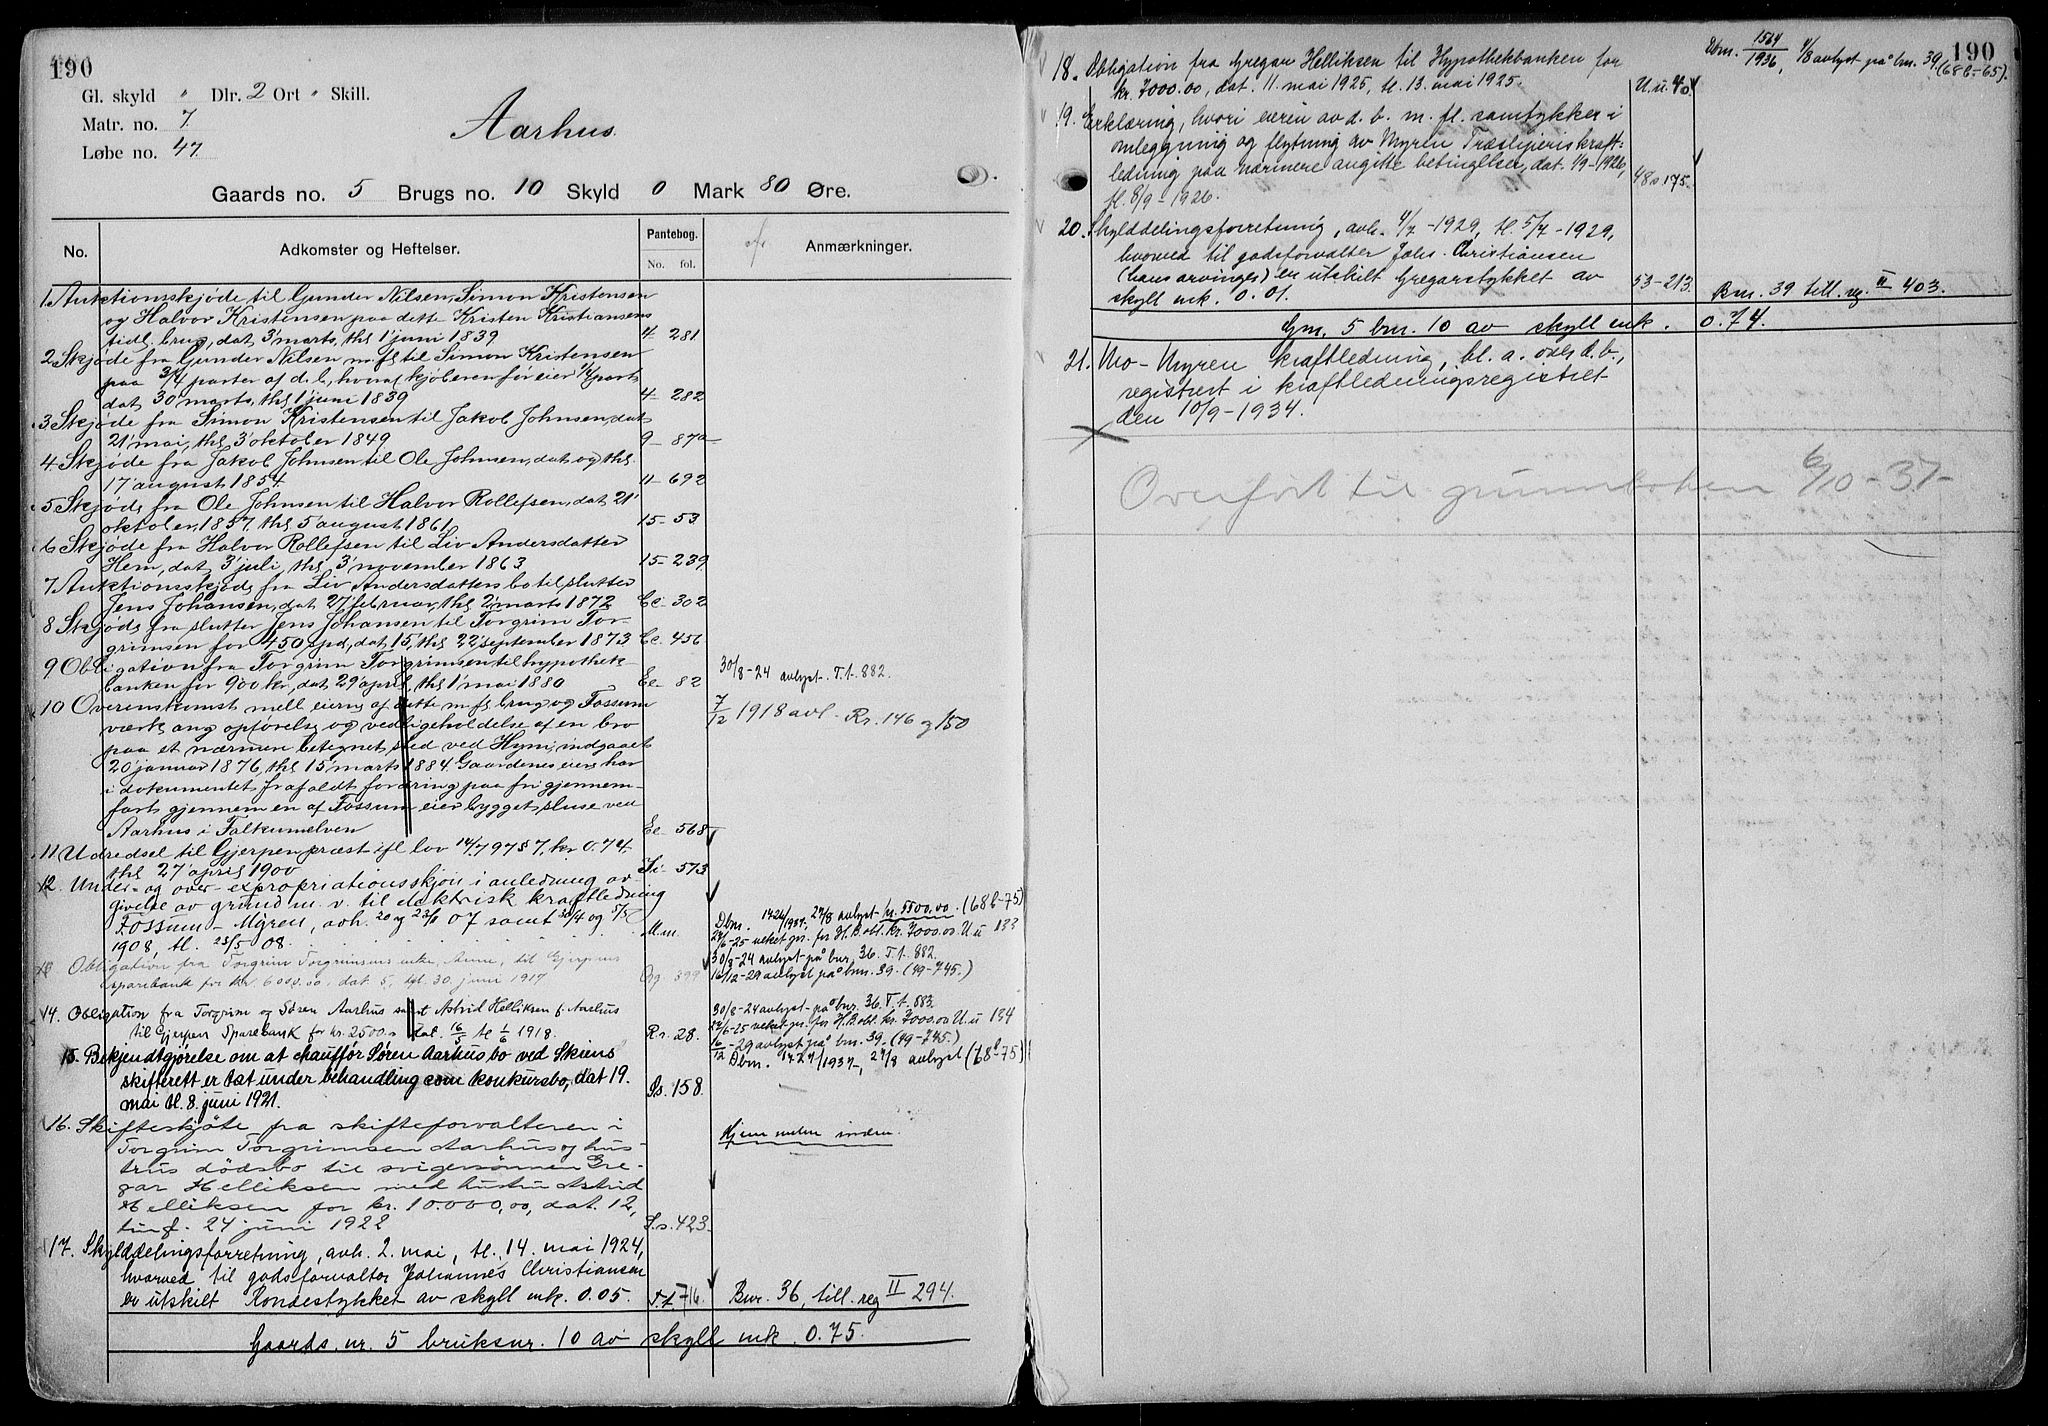 190
Gl. skyld " Dlr. 2 Ort " Skill.
Matr. no. 7.
Løbe no. 47.
Aarhus.
Gaards no. 5 Brugs no. 10 Skyld 0 Mark 80 Øre.
No. Adkomster og Heftelser. Pantebog. No. fol. Anmærkninger.
1. Auktionsskjøde til Gunder Nilsen, Simon Kristensen
og Halvor Kristensen paa dette Kristen Kristiansens
tidl. brug, dat. 3' marts, thl 1' juni 1839 4 281
2 Skjøde fra Gunder Nilsen m fl til Simon Kristensen
paa 3/4 parter af d. b., hvoraf kjøberen før eier 1/4 part,
dat 30 marts, thl 1' juni 1839 4 282
3 Skjøde fra Simon Kristensen til Jakob Johnsen, dat
21' mai, thl 3' oktober 1849 9 - 87a
4. Skjøde fra Jakob Johnsen til Ole Johnsen, dat og thl.
17' august 1854. 11 - 692
5 Skjøde fra Ole Johnsen til Halvor Rollefsen, dat 21'
oktober 1857, thl 5' august 1861 15 - 53
6 Skjøde fra Halvor Rollefsen til Liv Andersdatter
Hem, dat 3' juli, thl 3' november 1863 15 - 239
7 Auktionsskjøde fra Liv Andersdatters bo til slutter
Jens Johansen, dat 27' februar, thl 2' marts 1872 Cc - 302
8 Skjøde fra slutter Jens Johansen til Torgrim Tor-
grimsen for 450 spd, dat 15, thl 22' september 1873 Cc. 456
9 Obligation fra Torgrim Torgrimsen til hypothek-
banken for 900 kr, dat 29' april, thl 1' mai 1880 Ee - 82 30/8-24 avlyst. T.t. 882.
10 Overenskomst mell eierne af dette m fl brug og Fossum
værk ang opførelse og vedligeholdelse af en bro
paa et nærmere betegnet sted ved Hyni, indgaaet
20' januar 1876, thl 15' marts 1884. Gaardenes eiere har
i dokumentet frafaldt fordring paa fri gjennem-
fart gjennem en af Fossum eier bygget sluse ved
Aarhus i Falkumelven Ee - 568
7/12 1918 avl. Rr. 146 og 150
11 Udredsel til Gjerpen præst ifl lov 14/7 97 § 7, kr 0.74.
thl 27' april 1900 573
12. Under- og over-expropriationsskjøn i anledning av-
givelse av grund m. v. til elektrisk kraftledning
Fossum - Myren, avh. 20 og 23/1 07 samt 30/4 og 5/5
1908, tl. 23/5 08. M.m.
13 Obligation fra Torgrim Torgrimsens enke, Anne, til Gjerpens
sparebank for kr. 6000.00, dat 5, tgl. 30. juni 1917 Qq. 399
Dbm. 1426/1937, 27/8 avlyst kr. 5500.00. (68b-75)
27/6-25 veket pr. for H.B. obl. kr. 7000.00 U.u 133
30/8-24 avlyst på bnr. 36. T.t. 882.
16/12-29 avlyst på bnr. 39. (49-745.)
14. Obligation fra Torgrim og Søren Aarhus samt Astrid Helliksen f. Aarhus
til Gjerpen Sparebank for kr. 2500.- dat. 16/5 tl 1/6 1918. Rr. 28.
30/8-24 avlyst på bnr. 36. T.t. 883.
27/6-25 veket pr. for H.B. obl. kr. 7000.00 U.u 134
16/12-29 avlyst på bnr. 39. (49-745.)
Dbm. 1427/1937, 27/8 avlyst (68b-75)
15. Bekjendtgjørelse om at chauffør Søren Aarhus bo ved Skiens
skifterett er tat under behandling som konkursbo, dat 19.
mai tl. 8. juni 1921. Ss. 158.
16. Skifteskjøte fra skifteforvalteren i
Torgrim Torgrimsen Aarhus og hus-
trus dødsbo til svigersønnen Gre-
gar Helliksen med hustru Astrid
Helliksen for kr. 10.000,00, dat. 12,
tingl. 24 juni 1922 S.s. 423.
17. Skylddelingsforretning, avh. 2. mai, tl. 14. mai 1924,
hvorved til godsforvalter Johannes Christiansen
er utskilt Rondestykket av skyll mk. 0.05. T.t - 716. Bnr. 36, till. reg II 294.
Gaards. nr. 5 bruksnr. 10 av skyll mk. 0.75.
190
18. Obligation fra Gregar Helliksen til Hypothekbanken for
kr. 7000.00, dat. 11. mai 1925, tl. 13. mai 1925. U.u. 40.
Dbm. 1564/1936, 4/8 avlyst på bnr. 39. (68b-65).
19. Erklæring, hvori eieren av d. b. m. fl. samtykker i
omleggning og flytning av Myren Træsliperis kraft-
ledning paa nærmere angitte betingelser, dat. 1/9-1926,
tl. 8/9-1926. 48 s 175.
20. Skylddelingsforretning, avh. 4/7-1929, tl. 5/7-1929,
hvorved til godsforvalter Johs. Christiansen
(hans arvinger) er utskilt Gregarstykket av
skyll mk. 0.01. 53-213. Bnr. 39 till. reg. II 403.
Gnr. 5 bnr. 10 av skyll mk. 0.74.
21. Mo - Myren kraftledning, bl. a. over d. b.,
registrert i kraftledningsregistret
den 10/9-1934.
Overført til grunnboken 6/10-37-